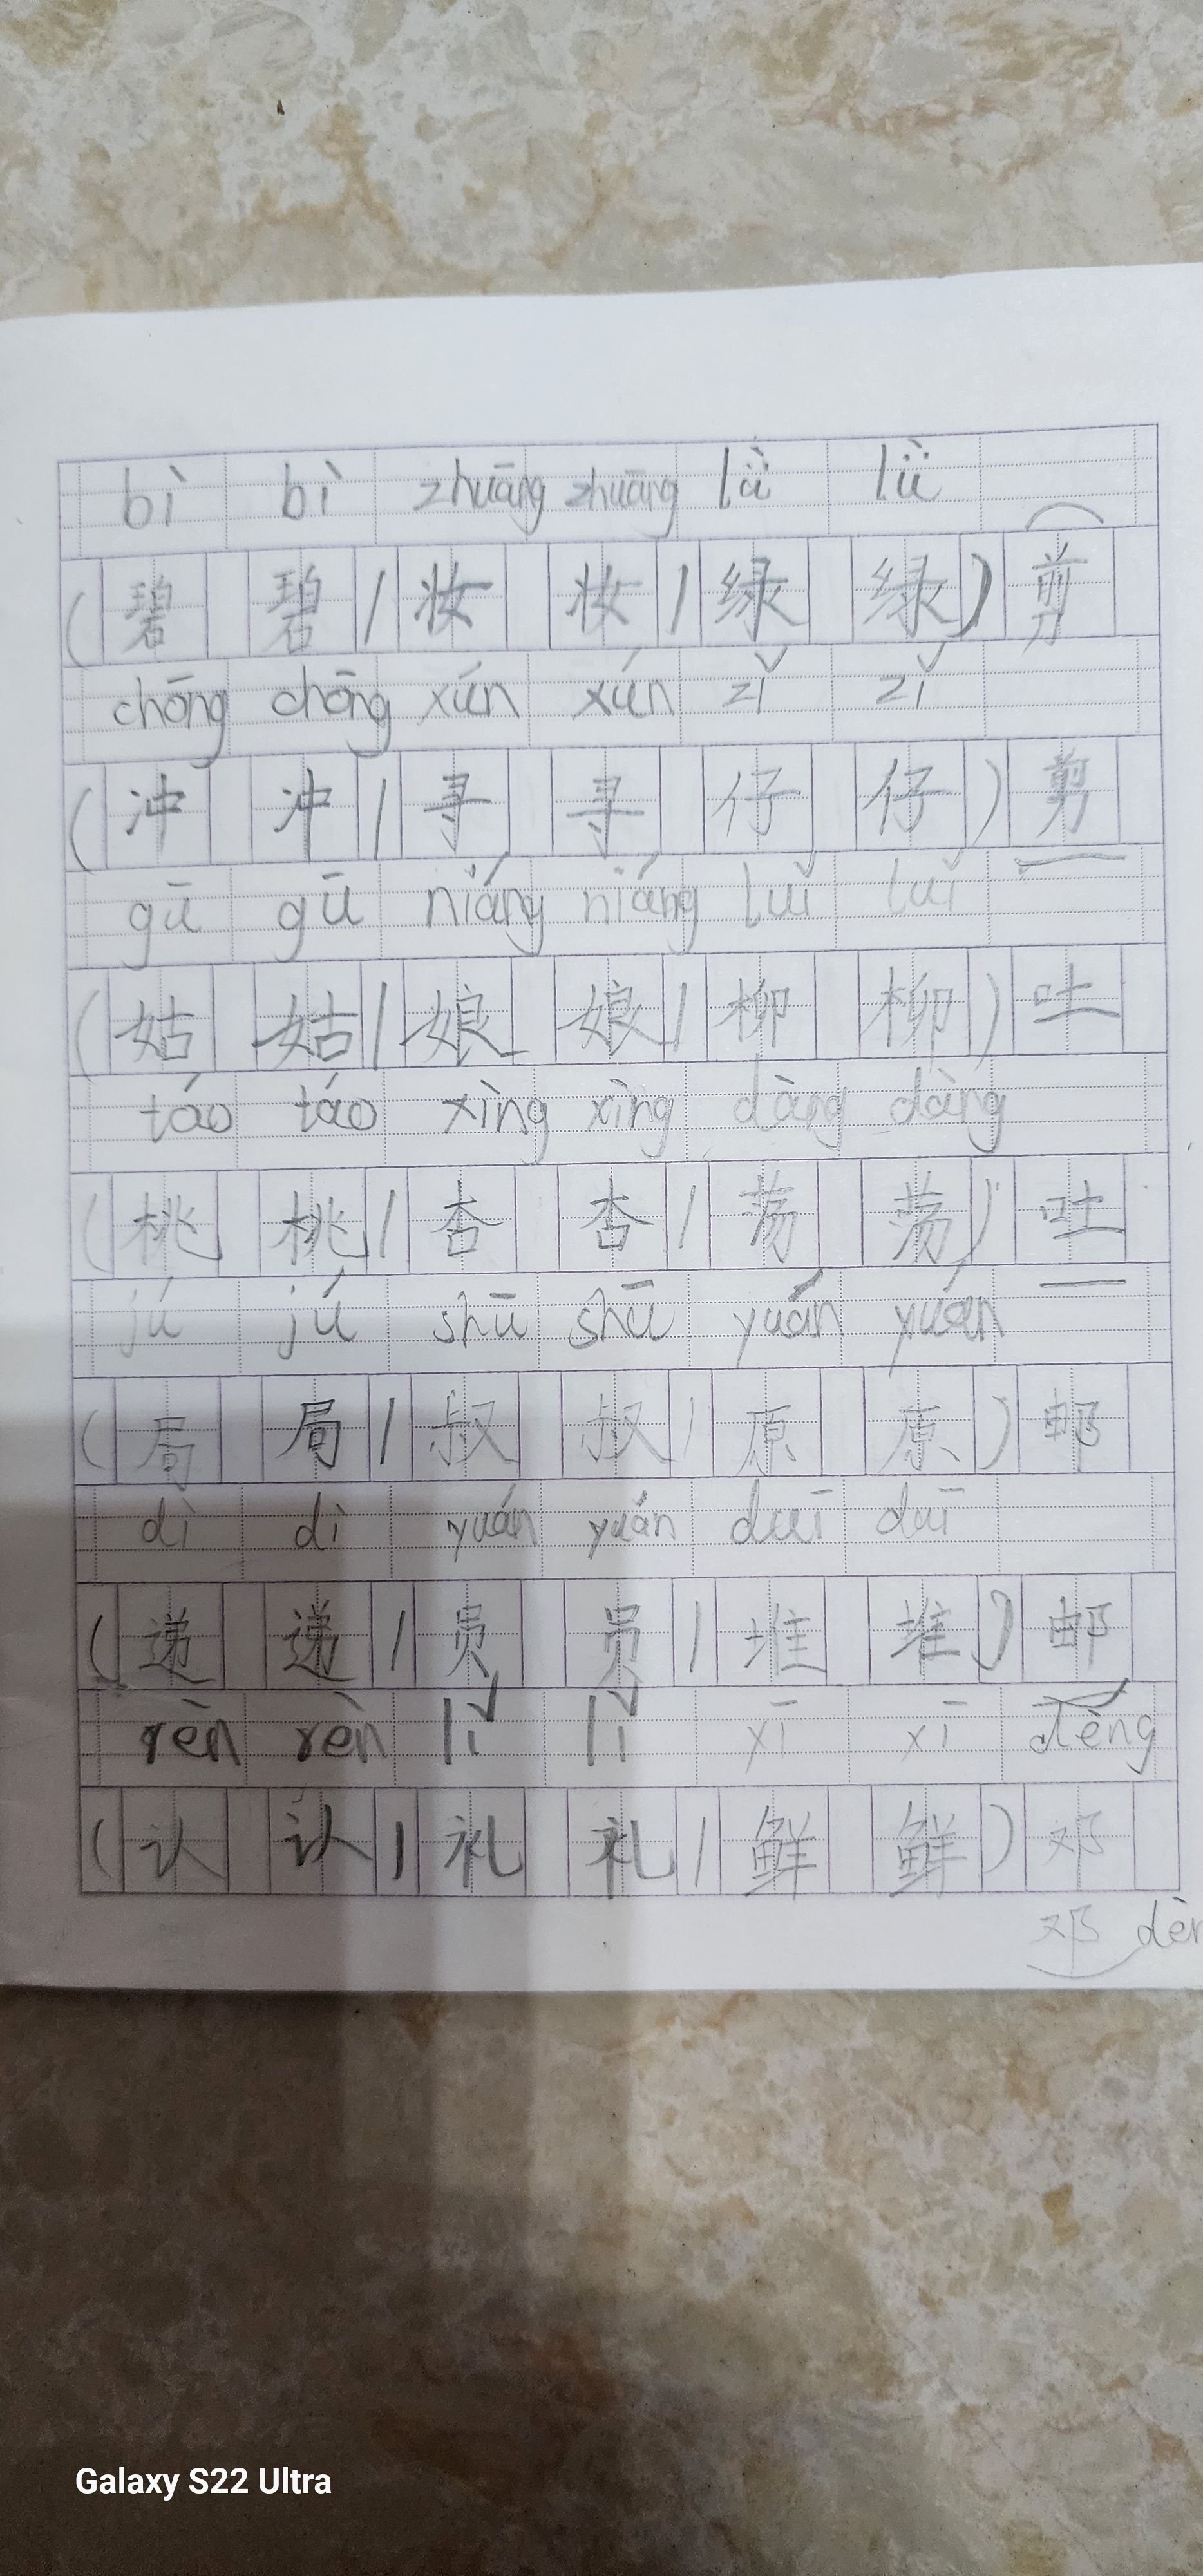 bì bì zhuāng zhuāng lǜ lǜ
(碧 碧/妆 妆/绿 绿)剪
chōng chōng xún xún zǐ zǐ
(冲 冲/寻 寻 仔 仔)剪
gū gū niáng niáng luǐ luǐ
(姑 姑/娘 娘/柳 柳)吐
táo táo xìng xìng dàng dàng
(桃 桃/杏 杏/荡 荡)吐
jú jú shū shū yuán yuán
(局 局/叔 叔/原 原)邮
dì dì yuán yuán duī duī
(递 递/员 员/堆 堆)邮
rèn rèn lǐ lǐ xī xī dèng
(认 认/礼 礼/鲜 鲜)邓
邓 dèn
Galaxy S22 Ultra